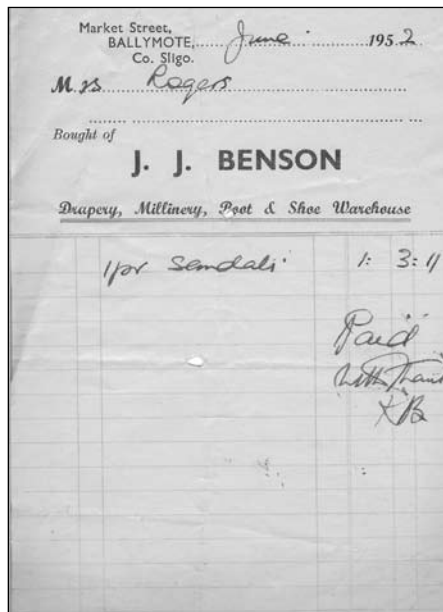 Market Street,
BALLYMOTE, June 1952
Co. Sligo.
Mrs Rogers
Bought of
J. J. BENSON
Drapery, Millinery, Boot & Shoe Warehouse
1 pr Sandals 1: 3: 11
Paid
With Thanks
KB